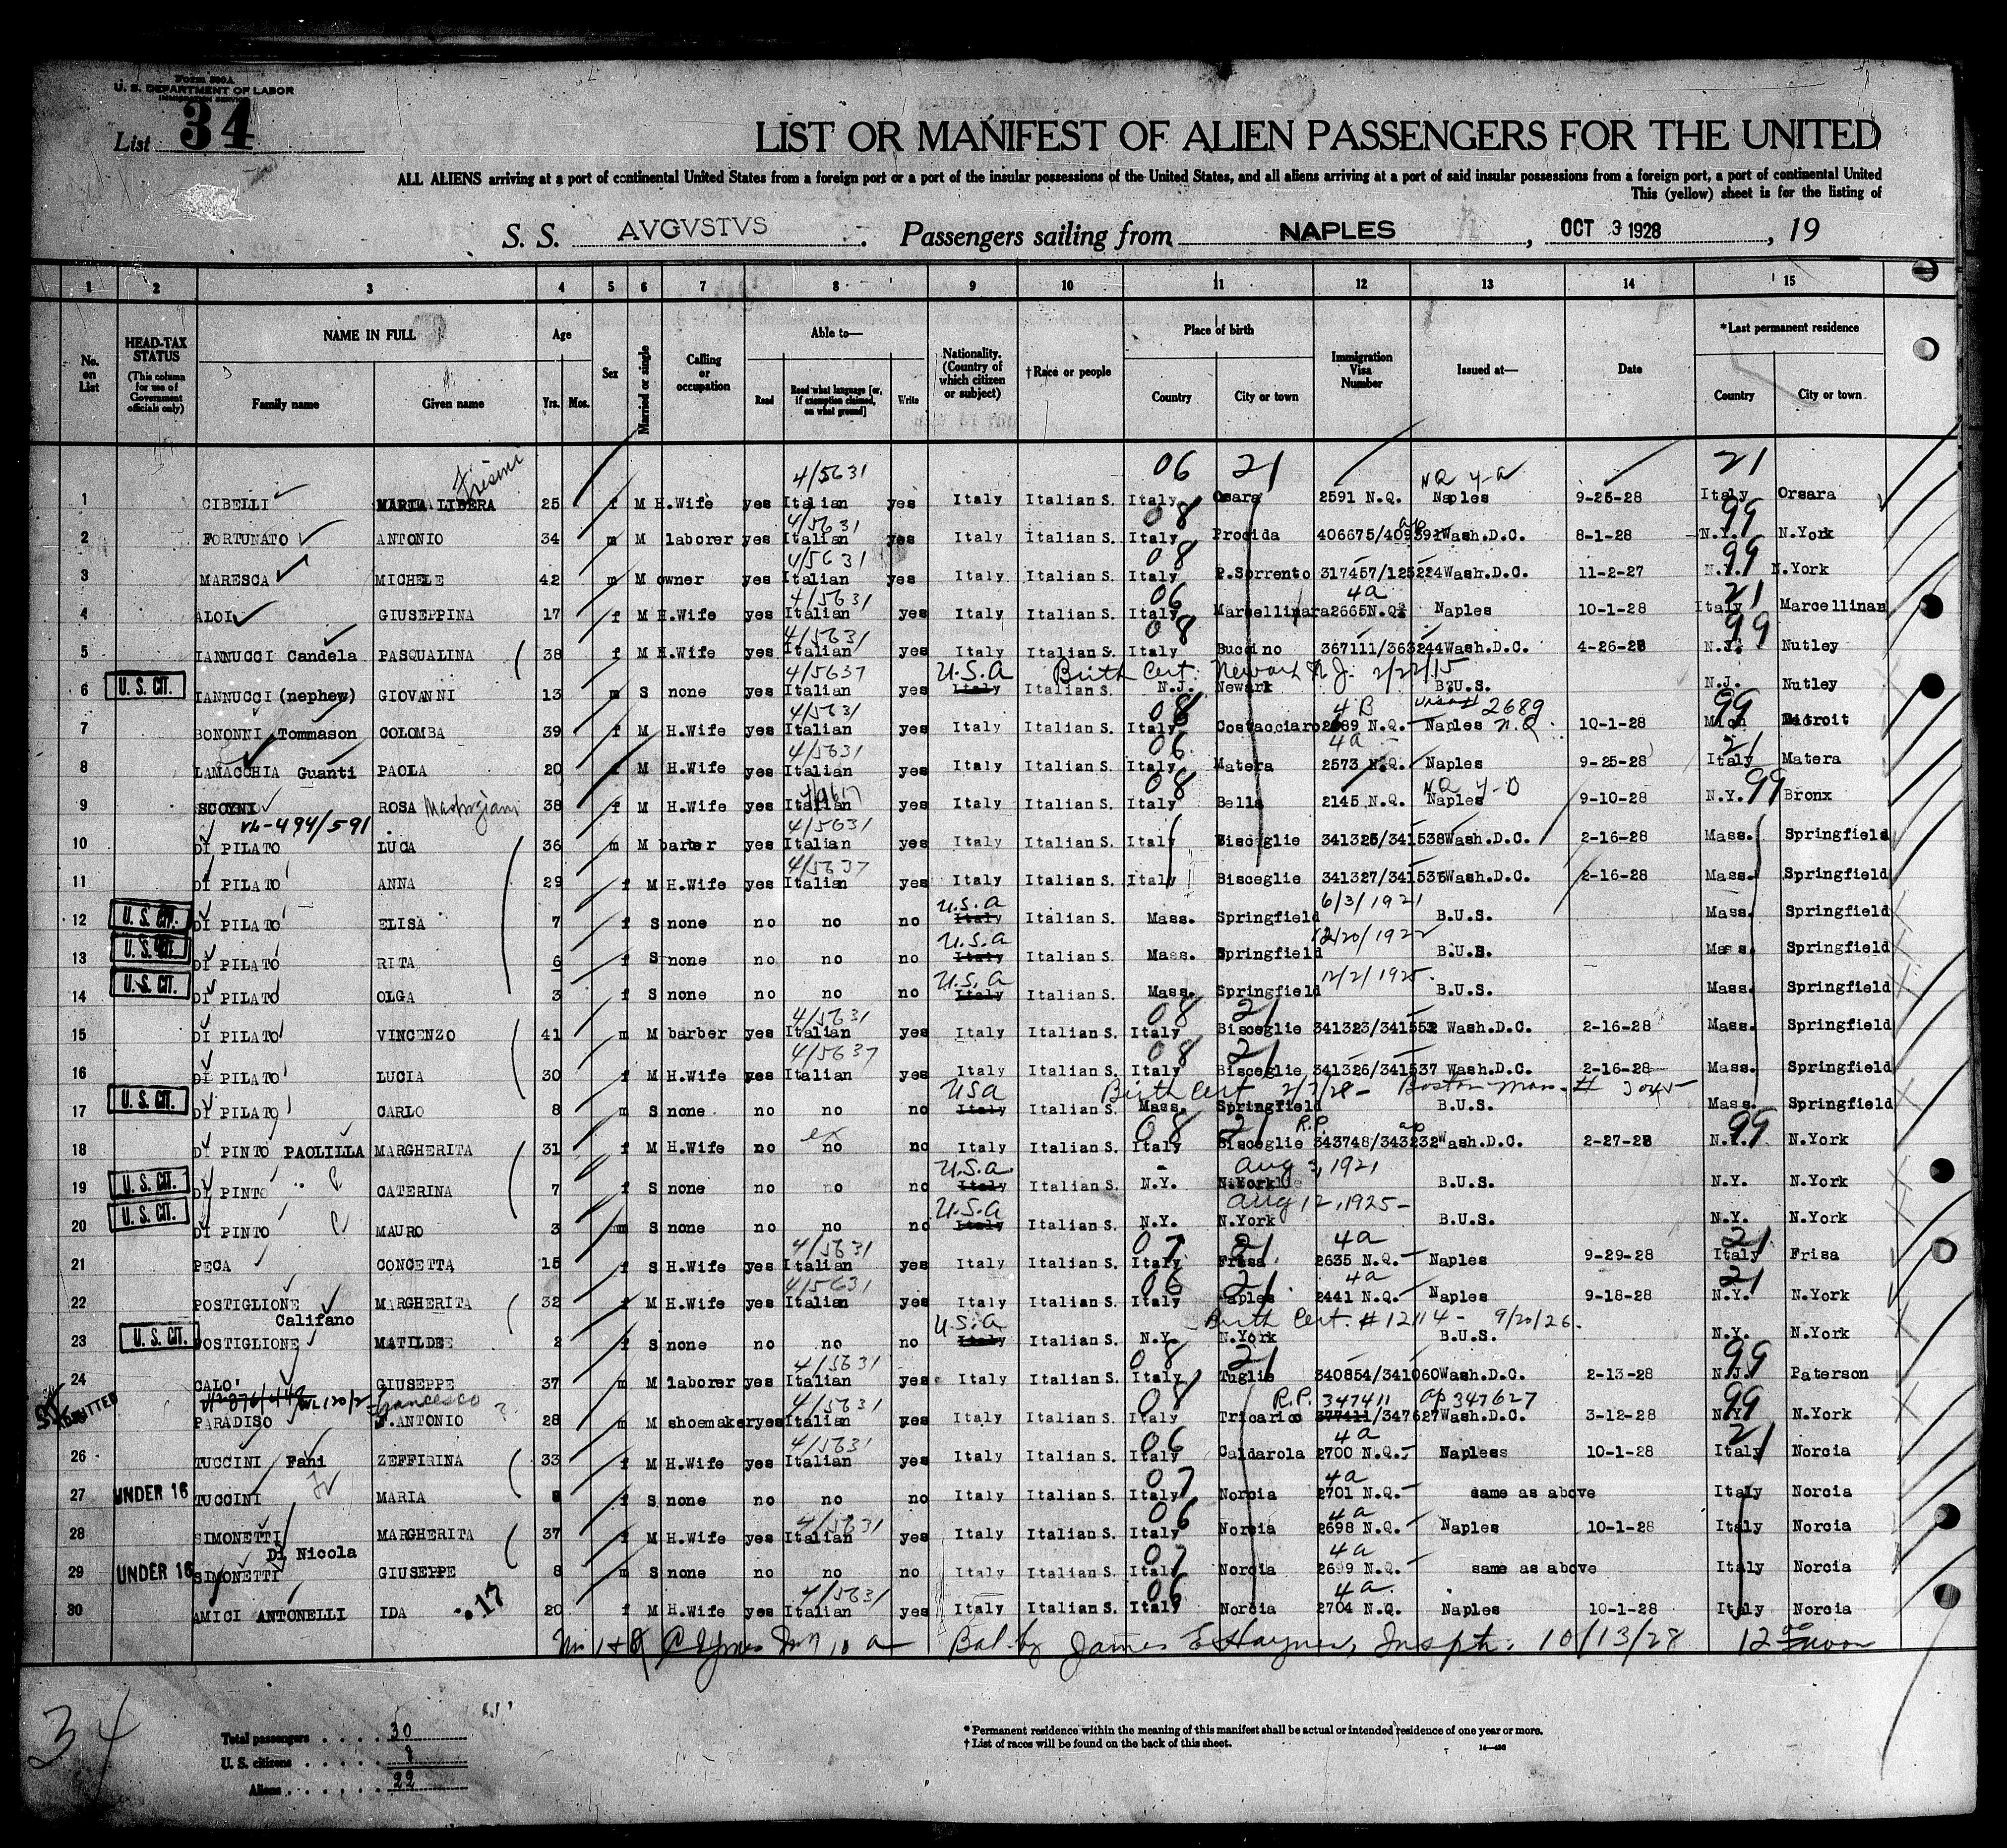 Form 500A
U. S. DEPARTMENT OF LABOR
IMMIGRATION SERVICE
List 34
LIST OR MANIFEST OF ALIEN PASSENGERS FOR THE UNITED
ALL ALIENS arriving at a port of continental United States from a foreign port or a port of the insular possessions of the United States, and all aliens arriving at a port of said insular possessions from a foreign port, a port of continental United
This (yellow) sheet is for the listing of
S. S. AVGVSTVS Passengers sailing from NAPLES, OCT 3 1928, 19
1 2 3 4 5 6 7 8 9 10 11 12 13 14 15
No. on List
HEAD-TAX STATUS (This column for use of Government officials only)
NAME IN FULL Family name Given name
Age Yrs. Mos.
Sex
Married or single
Calling or occupation
Able to— Read Read what language [or, if exemption claimed, on what ground] Write
Nationality. (Country of which citizen or subject)
†Race or people
Place of birth Country City or town
Immigration Visa Number
Issued at—
Date
*Last permanent residence Country City or town
4/5631 06 21 NQ 4-a 21
1 CIBELLI MARIA LIBERA 25 f M H.Wife yes Italian yes Italy Italian S. Italy Orsara 2591 N.Q. Naples 9-25-28 Italy Orsara
4/5631 08 99
2 FORTUNATO ANTONIO 34 m M laborer yes Italian yes Italy Italian S. Italy Procida 406675/409391 Wash.D.C. 8-1-28 N.Y. N.York
4/5631 08 99
3 MARESCA MICHELE 42 m M owner yes Italian yes Italy Italian S. Italy P.Sorrento 317457/125224 Wash.D.C. 11-2-27 N.Y. N.York
4/5631 06 4a 21
4 ALOI GIUSEPPINA 17 f M H.Wife yes Italian yes Italy Italian S. Italy Marcellinara 2665 N.Q. Naples 10-1-28 Italy Marcellinan
4/5631 08 99
5 IANNUCCI Candela PASQUALINA 38 f M H.Wife yes Italian yes Italy Italian S. Italy Buccino 367111/363244 Wash.D.C. 4-26-28 N.Y. Nutley
4/5637 U.S.A Birth Cert. Newark N.J. 2/22/15
6 U. S. CIT. IANNUCCI (nephew) GIOVANNI 13 m S none yes Italian yes Italy Italian S. N.J. Newark B.U.S. N.J. Nutley
4/5631 08 4B 2689 99
7 BONONNI Tommason COLOMBA 39 f M H.Wife yes Italian yes Italy Italian S. Italy Costacciaro 2689 N.Q. Naples N.Q. 10-1-28 Mich Detroit
4/5631 06 4a 21
8 LAMACCHIA Guanti PAOLA 20 f M H.Wife yes Italian yes Italy Italian S. Italy Matera 2573 N.Q. Naples 9-25-28 Italy Matera
08 NQ 99
9 SCOYNI ROSA 38 f M H.Wife yes Italian yes Italy Italian S. Italy Bella 2145 N.Q. Naples 9-10-28 N.Y. Bronx
VL-494/591 4/5631
10 DI PILATO LUCA 36 m M barber yes Italian yes Italy Italian S. Italy Bisceglie 341325/341538 Wash.D.C. 2-16-28 Mass. Springfield
4/5637
11 DI PILATO ANNA 29 f M H.Wife yes Italian yes Italy Italian S. Italy Bisceglie 341327/341536 Wash.D.C. 2-16-28 Mass. Springfield
U.S.a 6/3/1921
12 U. S. CIT. DI PILATO ELISA 7 f S none no no no Italy Italian S. Mass. Springfield B.U.S. Mass. Springfield
U.S.a 12/20/1922
13 U. S. CIT. DI PILATO RITA 6 f S none no no no Italy Italian S. Mass. Springfield B.U.S. Mass. Springfield
U.S.a 12/2/1925.
14 U. S. CIT. DI PILATO OLGA 3 f S none no no no Italy Italian S. Mass. Springfield B.U.S. Mass. Springfield
4/5631 08 21
15 DI PILATO VINCENZO 41 m M barber yes Italian yes Italy Italian S. Italy Bisceglie 341323/341552 Wash.D.C. 2-16-28 Mass. Springfield
4/5637 08 21
16 DI PILATO LUCIA 30 f M H.Wife yes Italian yes Italy Italian S. Italy Bisceglie 341326/341537 Wash.D.C. 2-16-28 Mass. Springfield
USA Birth Cert 2/7/28 - Boston Mass. # 3045
17 U. S. CIT. DI PILATO CARLO 8 m S none no no no Italy Italian S. Mass. Springfield B.U.S. Mass. Springfield
08 21 R.P. 99
18 DI PINTO PAOLILLA MARGHERITA 31 f M H.Wife no no no Italy Italian S. Italy Bisceglie 343748/343232 Wash.D.C. 2-27-28 N.Y. N.York
U.S.a aug 3, 1921
19 U. S. CIT. DI PINTO CATERINA 7 f S none no no no Italy Italian S. N.Y. N.York B.U.S. N.Y. N.York
U.S.a aug 12, 1925 -
20 U. S. CIT. DI PINTO MAURO 3 m S none no no no Italy Italian S. N.Y. N.York B.U.S. N.Y. N.York
4/5631 07 21 4a 21
21 PECA CONCETTA 15 f S H.Wife yes Italian yes Italy Italian S. Italy Frisa 2635 N.Q. Naples 9-29-28 Italy Frisa
4/5631 06 21 4a 21
22 POSTIGLIONE Califano MARGHERITA 32 f M H.Wife yes Italian yes Italy Italian S. Italy Naples 2441 N.Q. Naples 9-18-28 N.Y. N.York
U.S.a Birth Cert. # 12114 - 9/20/26.
23 U. S. CIT. POSTIGLIONE MATILDE 2 f S none no no no Italy Italian S. N.Y. N.York B.U.S. N.Y. N.York
4/5631 08 21 99
24 CALO' GIUSEPPE 37 m M laborer yes Italian yes Italy Italian S. Italy Tuglie 340854/341060 Wash.D.C. 2-13-28 N.J. Paterson
Francesco 4/5631 08 R.P. 347411 ap 347627 99
ADMITTED PARADISO F.ANTONIO 28 m M shoemaker yes Italian yes Italy Italian S. Italy Tricarico 377411/347627 Wash.D.C. 3-12-28 N.Y. N.York
4/5631 06 4a 21
26 TUCCINI Fani ZEFFIRINA 33 f M H.Wife yes Italian yes Italy Italian S. Italy Caldarola 2700 N.Q. Napless 10-1-28 Italy Norcia
07 4a
27 UNDER 16 TUCCINI MARIA f S none no no no Italy Italian S. Italy Norcia 2701 N.Q. same as above Italy Norcia
4/5631 06 4a
28 SIMONETTI Di Nicola MARGHERITA 37 f M H.Wife yes Italian yes Italy Italian S. Italy Norcia 2698 N.Q. Naples 10-1-28 Italy Norcia
07 4a
29 UNDER 16 SIMONETTI GIUSEPPE 8 m S none no no no Italy Italian S. Italy Norcia 2699 N.Q. same as above Italy Norcia
4/5631 06 4a
30 AMICI ANTONELLI IDA .17 20 f M H.Wife yes Italian yes Italy Italian S. Italy Norcia 2704 N.Q. Naples 10-1-28 Italy Norcia
Bal by James E Haynes, Inspt. 10/13/28 12 noon
34
Total passengers 30
U. S. citizens 8
Aliens 22
* Permanent residence within the meaning of this manifest shall be actual or intended residence of one year or more.
† List of races will be found on the back of this sheet.